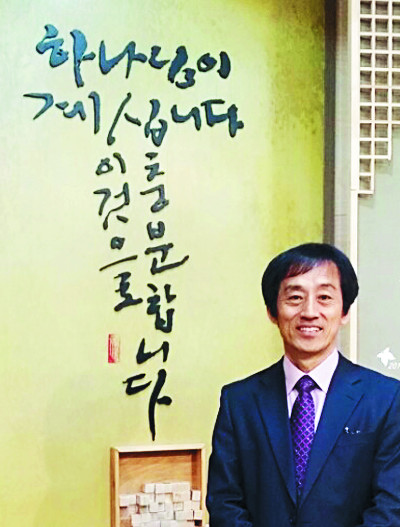 하나님이
계십니다
이것으로
충분합니다